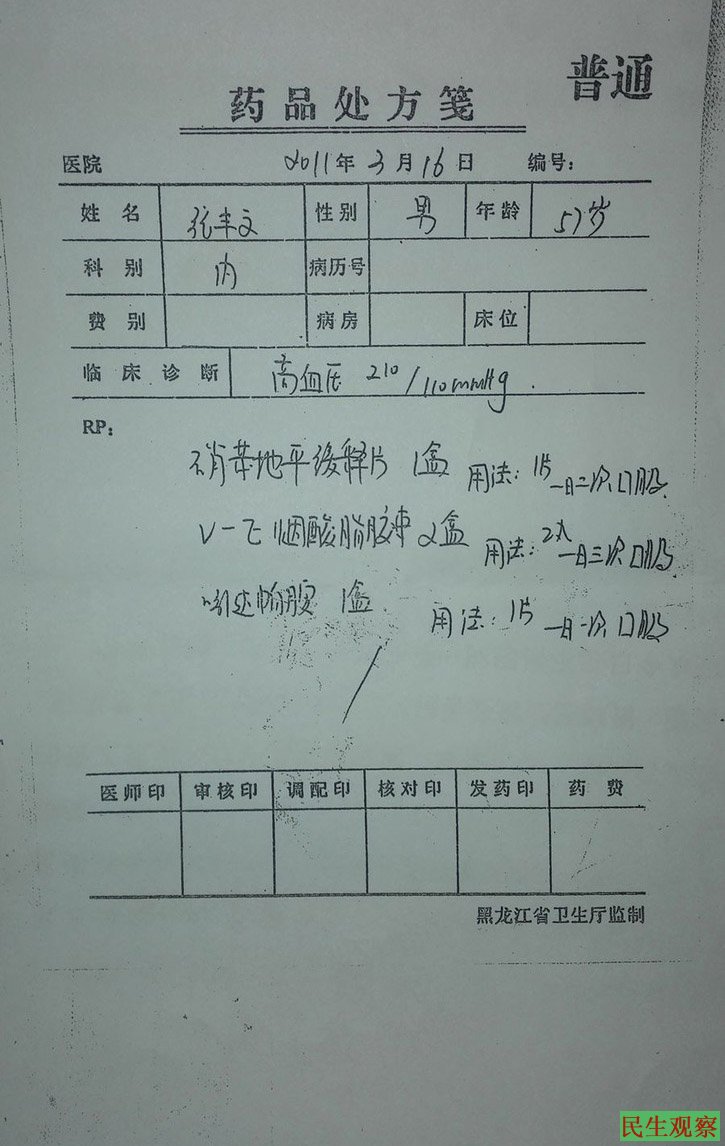 普通
药品处方笺
医院 2011年3月16日 编号:
姓名 张丰文 性别 男 年龄 57岁
科别 内 病历号
费别 病房 床位
临床诊断 高血压 210/110mmHg.
RP:
硝苯地平缓释片 1盒 用法: 1片 一日二次口服.
V-E烟酸脂胶束 2盒 用法: 2丸 一日三次口服
吲达帕胺 1盒. 用法: 1片 一日一次, 口服
医师印 审核印 调配印 核对印 发药印 药费
黑龙江省卫生厅监制
民生观察